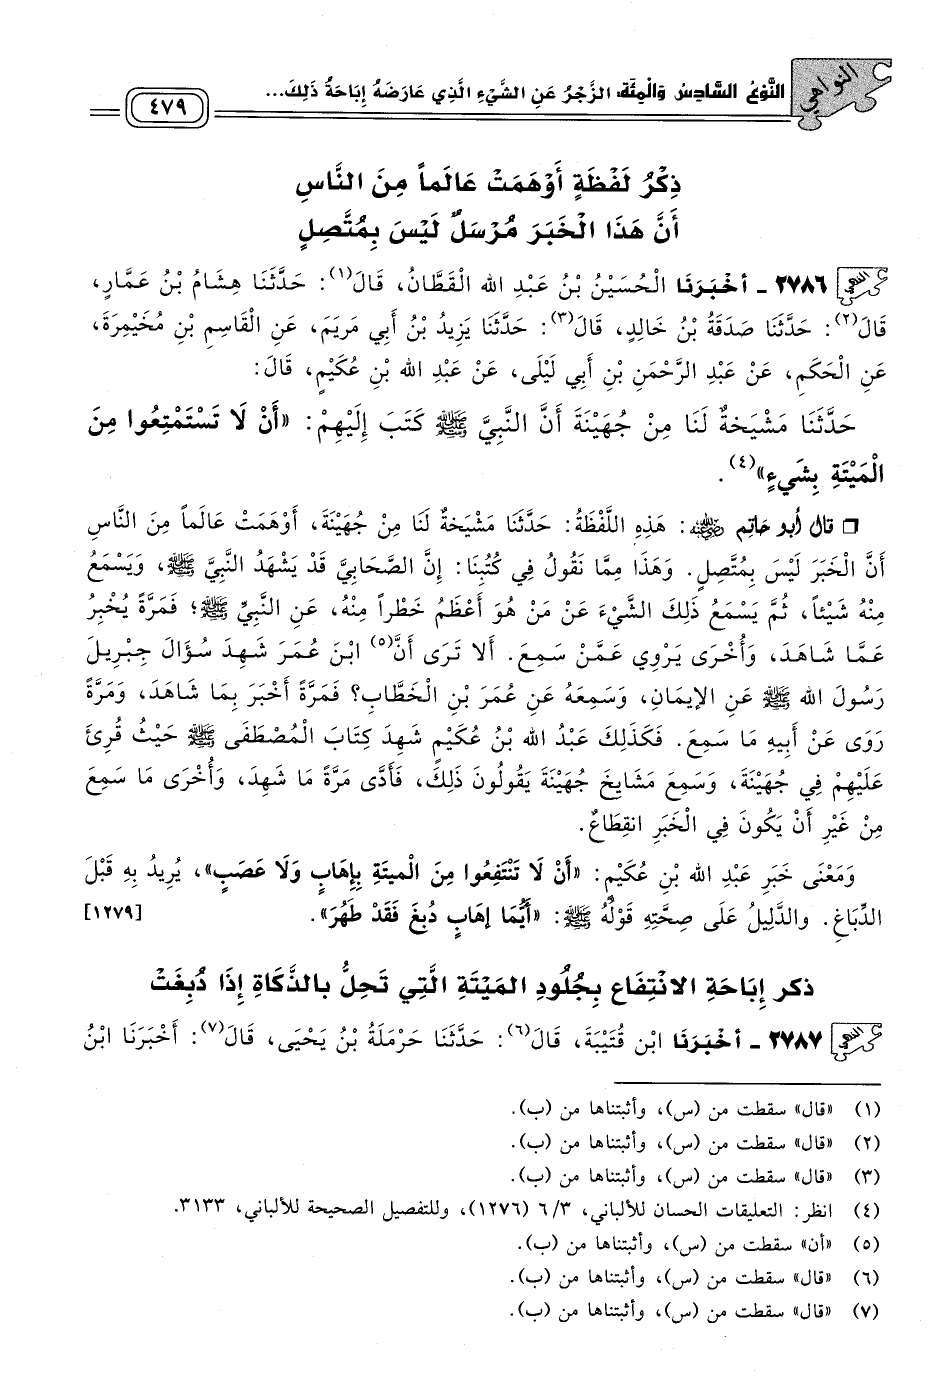 النواهي
النَّوْعُ السَّادِسُ وَالْمِئَة: الزَّجْرُ عَنِ الشَّيْءِ الَّذِي عَارَضَهُ إِبَاحَةُ ذَلِكَ...
٤٧٩
ذِكْرُ لَفْظَةٍ أَوْهَمَتْ عَالَماً مِنَ النَّاسِ
أَنَّ هَذَا الْخَبَرَ مُرْسَلٌ لَيْسَ بِمُتَّصِلٍ
٢٧٨٦ - أخْبَرَنَا الْحُسَيْنُ بْنُ عَبْدِ الله الْقَطَّانُ، قَالَ(١): حَدَّثَنَا هِشَامُ بْنُ عَمَّارٍ،
قَالَ(٢): حَدَّثَنَا صَدَقَةُ بْنُ خَالِدٍ، قَالَ(٣): حَدَّثَنَا يَزِيدُ بْنُ أَبِي مَرْيَمَ، عَنِ الْقَاسِمِ بْنِ مُخَيْمِرَةَ،
عَنِ الْحَكَمِ، عَنْ عَبْدِ الرَّحْمَنِ بْنِ أَبِي لَيْلَى، عَنْ عَبْدِ الله بْنِ عُكَيْمٍ، قَالَ:
حَدَّثَنَا مَشْيَخَةٌ لَنَا مِنْ جُهَيْنَةَ أَنَّ النَّبِيَّ ﷺ كَتَبَ إِلَيْهِمْ: «أَنْ لَا تَسْتَمْتِعُوا مِنَ
الْمَيْتَةِ بِشَيءٍ»(٤).
❒ قال أبو حاتم رضي الله عنه: هَذِهِ اللَّفْظَةُ: حَدَّثَنَا مَشْيَخَةٌ لَنَا مِنْ جُهَيْنَةَ، أَوْهَمَتْ عَالَماً مِنَ النَّاسِ
أَنَّ الْخَبَرَ لَيْسَ بِمُتَّصِلٍ. وَهَذَا مِمَّا نَقُولُ فِي كُتُبِنَا: إِنَّ الصَّحَابِيَّ قَدْ يَشْهَدُ النَّبِيَّ ﷺ، وَيَسْمَعُ
مِنْهُ شَيْئاً، ثُمَّ يَسْمَعُ ذَلِكَ الشَّيْءَ عَنْ مَنْ هُوَ أَعْظَمُ خَطْراً مِنْهُ، عَنِ النَّبِيِّ ﷺ؛ فَمَرَّةً يُخْبِرُ
عَمَّا شَاهَدَ، وَأُخْرَى يَرْوِي عَمَّنْ سَمِعَ. أَلا تَرَى أَنَّ(٥) ابْنَ عُمَرَ شَهِدَ سُؤَالَ جِبْرِيلَ
رَسُولَ الله ﷺ عَنِ الإِيمَانِ، وَسَمِعَهُ عَنِ عُمَرَ بْنِ الْخَطَّابِ؟ فَمَرَّةً أَخْبَرَ بِمَا شَاهَدَ، وَمَرَّةً
رَوَى عَنْ أَبِيهِ مَا سَمِعَ. فَكَذَلِكَ عَبْدُ الله بْنُ عُكَيْمٍ شَهِدَ كِتَابَ الْمُصْطَفَى ﷺ حَيْثُ قُرِئَ
عَلَيْهِمْ فِي جُهَيْنَةَ، وَسَمِعَ مَشَايِخَ جُهَيْنَةَ يَقُولُونَ ذَلِكَ، فَأَدَّى مَرَّةً مَا شَهِدَ، وَأُخْرَى مَا سَمِعَ
مِنْ غَيْرِ أَنْ يَكُونَ فِي الْخَبَرِ انقِطَاعٌ.
وَمَعْنَى خَبَرِ عَبْدِ الله بْنِ عُكَيْمٍ: «أَنْ لَا تَنْتَفِعُوا مِنَ الْميتَةِ بِإِهَابٍ وَلَا عَصَبٍ»، يُرِيدُ بِهِ قَبْلَ
الدِّبَاغِ. والدَّلِيلُ عَلَى صِحَّتِهِ قَوْلُهُ ﷺ: «أَيُّمَا إهَابٍ دُبِغَ فَقَدْ طَهُرَ». [١٢٧٩]
ذكر إِبَاحَةِ الانْتِفَاعِ بِجُلُودِ المَيْتَةِ الَّتِي تَحِلُّ بالذَّكَاةِ إِذَا دُبِغَتْ
٢٧٨٧ - أخْبَرَنَا ابْن قُتَيْبَةَ، قَالَ(٦): حَدَّثَنَا حَرْمَلَةُ بْنُ يَحْيَى، قَالَ(٧): أَخْبَرَنَا ابْنُ
(١) «قال» سقطت من (س)، وأثبتناها من (ب).
(٢) «قال» سقطت من (س)، وأثبتناها من (ب).
(٣) «قال» سقطت من (س)، وأثبتناها من (ب).
(٤) انظر: التعليقات الحسان للألباني، ٣/ ٦ (١٢٧٦)، وللتفصيل الصحيحة للألباني، ٣١٣٣.
(٥) «أن» سقطت من (س)، وأثبتناها من (ب).
(٦) «قال» سقطت من (س)، وأثبتناها من (ب).
(٧) «قال» سقطت من (س)، وأثبتناها من (ب).